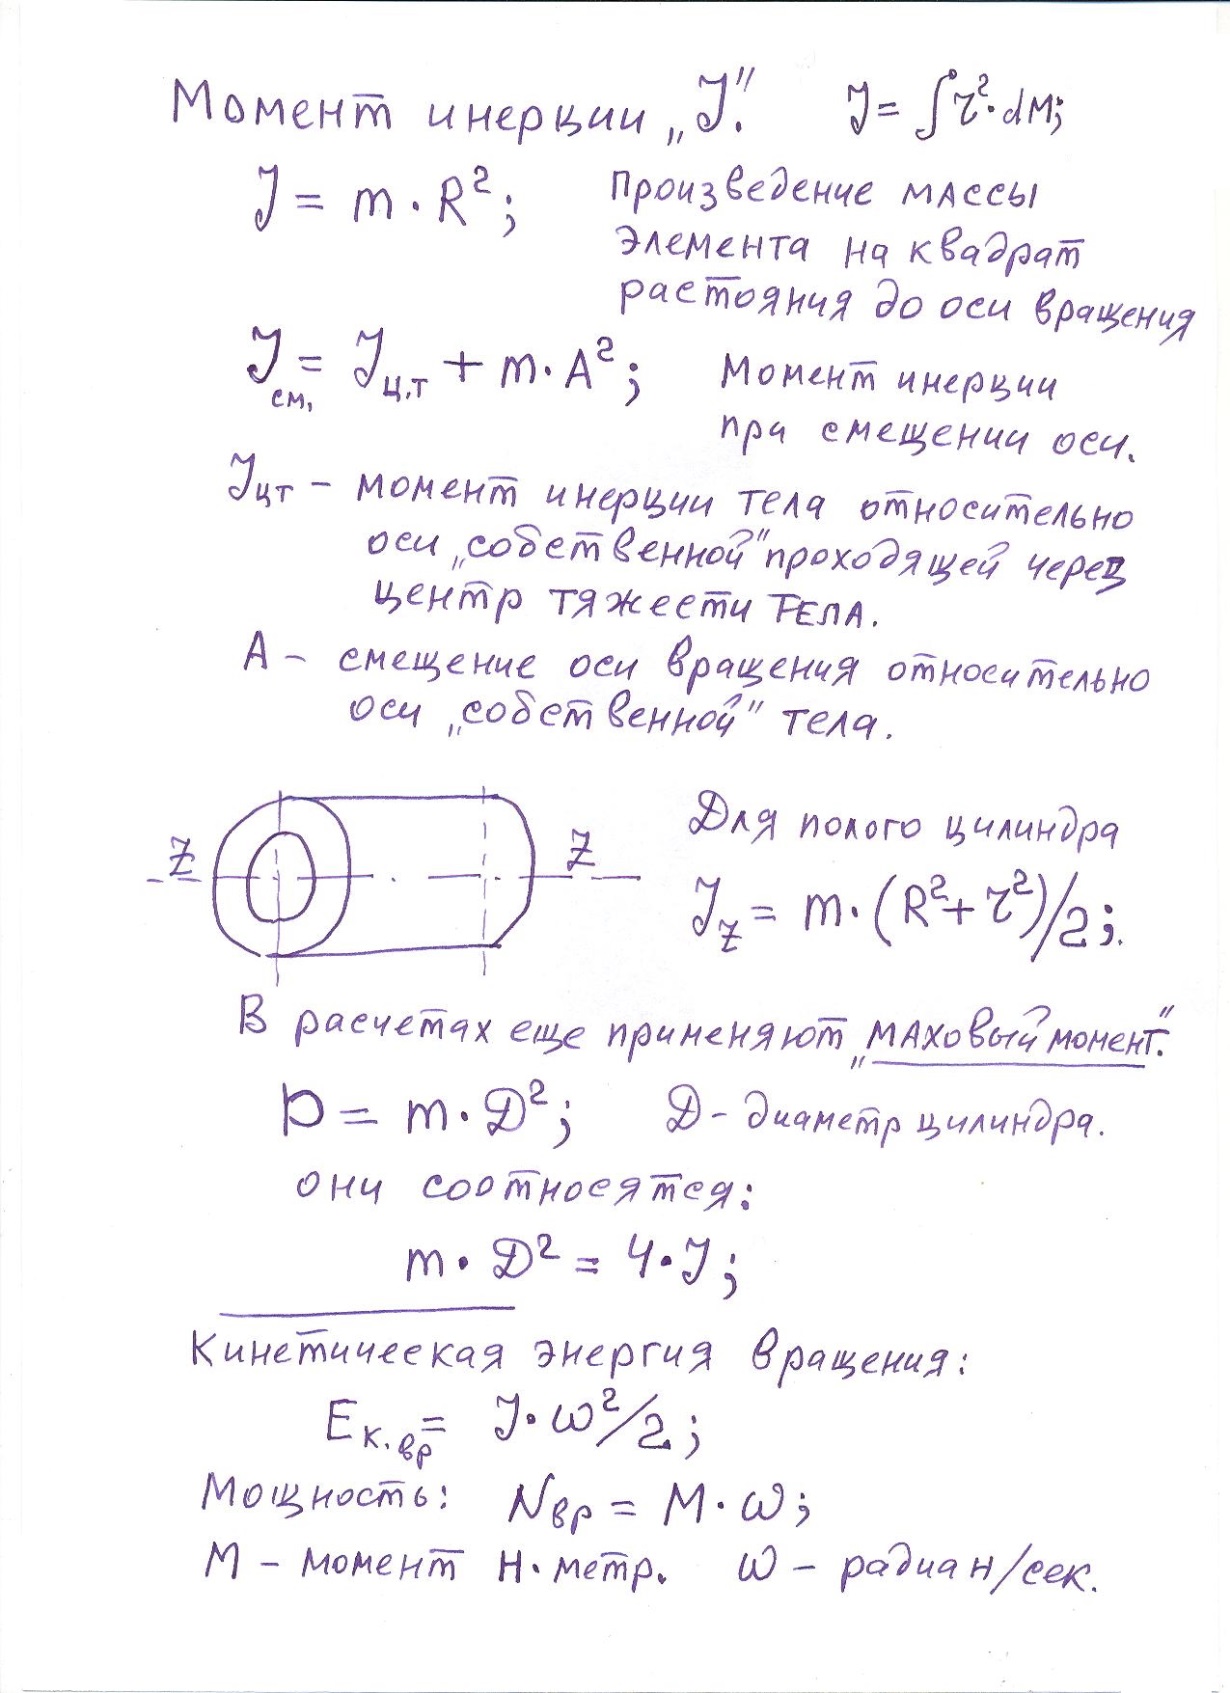 Момент инерции „J". J = ∫r²·dM;
J = m·R²; Произведение массы
элемента на квадрат
растояния до оси вращения
Jсм, = Jц.т + m·A²; Момент инерции
при смещении оси.
Jцт – момент инерции тела относительно
оси „собственной" проходящей через
центр тяжести тела.
А – смещение оси вращения относительно
оси „собственной" тела.
Z Z
Для полого цилиндра
Jz = m·(R²+r²)/2;
В расчетах еще применяют „маховый момент".
D = m·D²; D – диаметр цилиндра.
они соотносятся:
m·D² = 4·J;
Кинетическая энергия вращения:
Eк.вр = J·ω²/2;
Мощность: Nвр = M·ω;
М – момент н·метр. ω – радиан/сек.